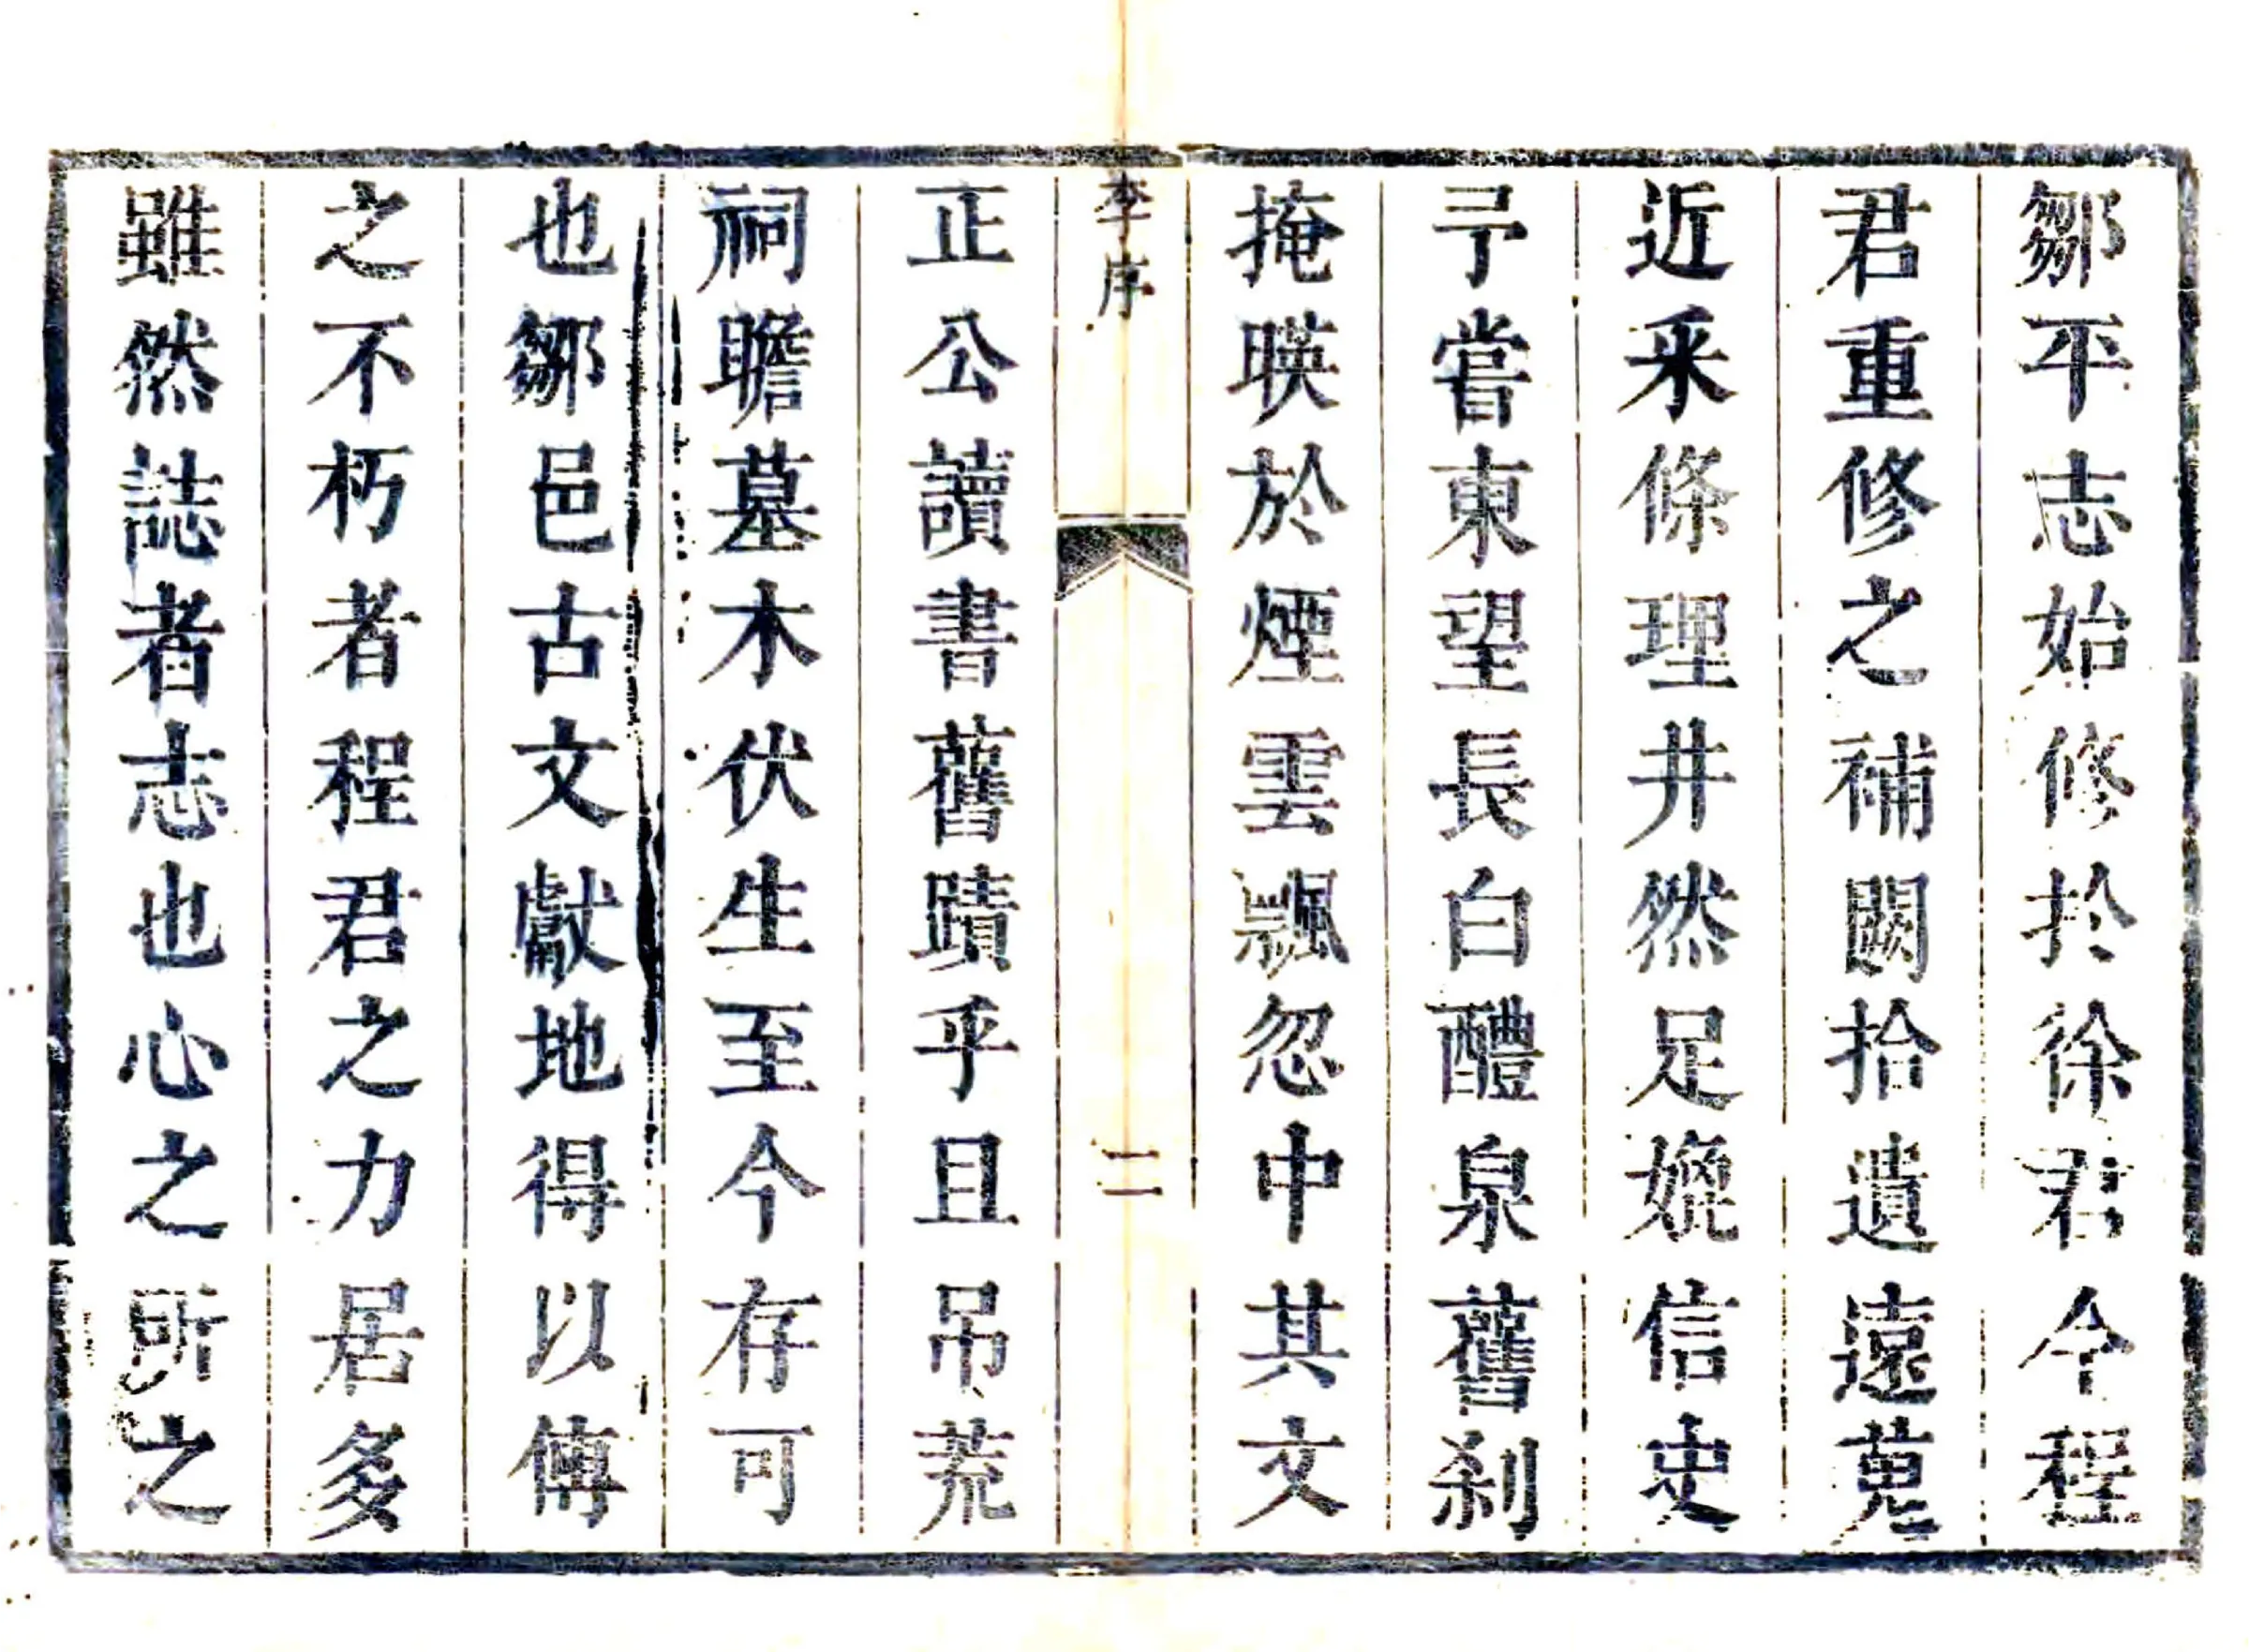 鄒平志始修於徐君今程
君重修之補闕拾遺遠蒐
近采條理井然足媲信史
予嘗東望長白醴泉舊刹
掩暎於煙雲飄忽中其文
李序
二
正公讀書舊蹟乎且吊荒
祠瞻墓木伏生至今存可
也鄒邑古文獻地得以傳
之不朽者程君之力居多
雖然誌者志也心之所之